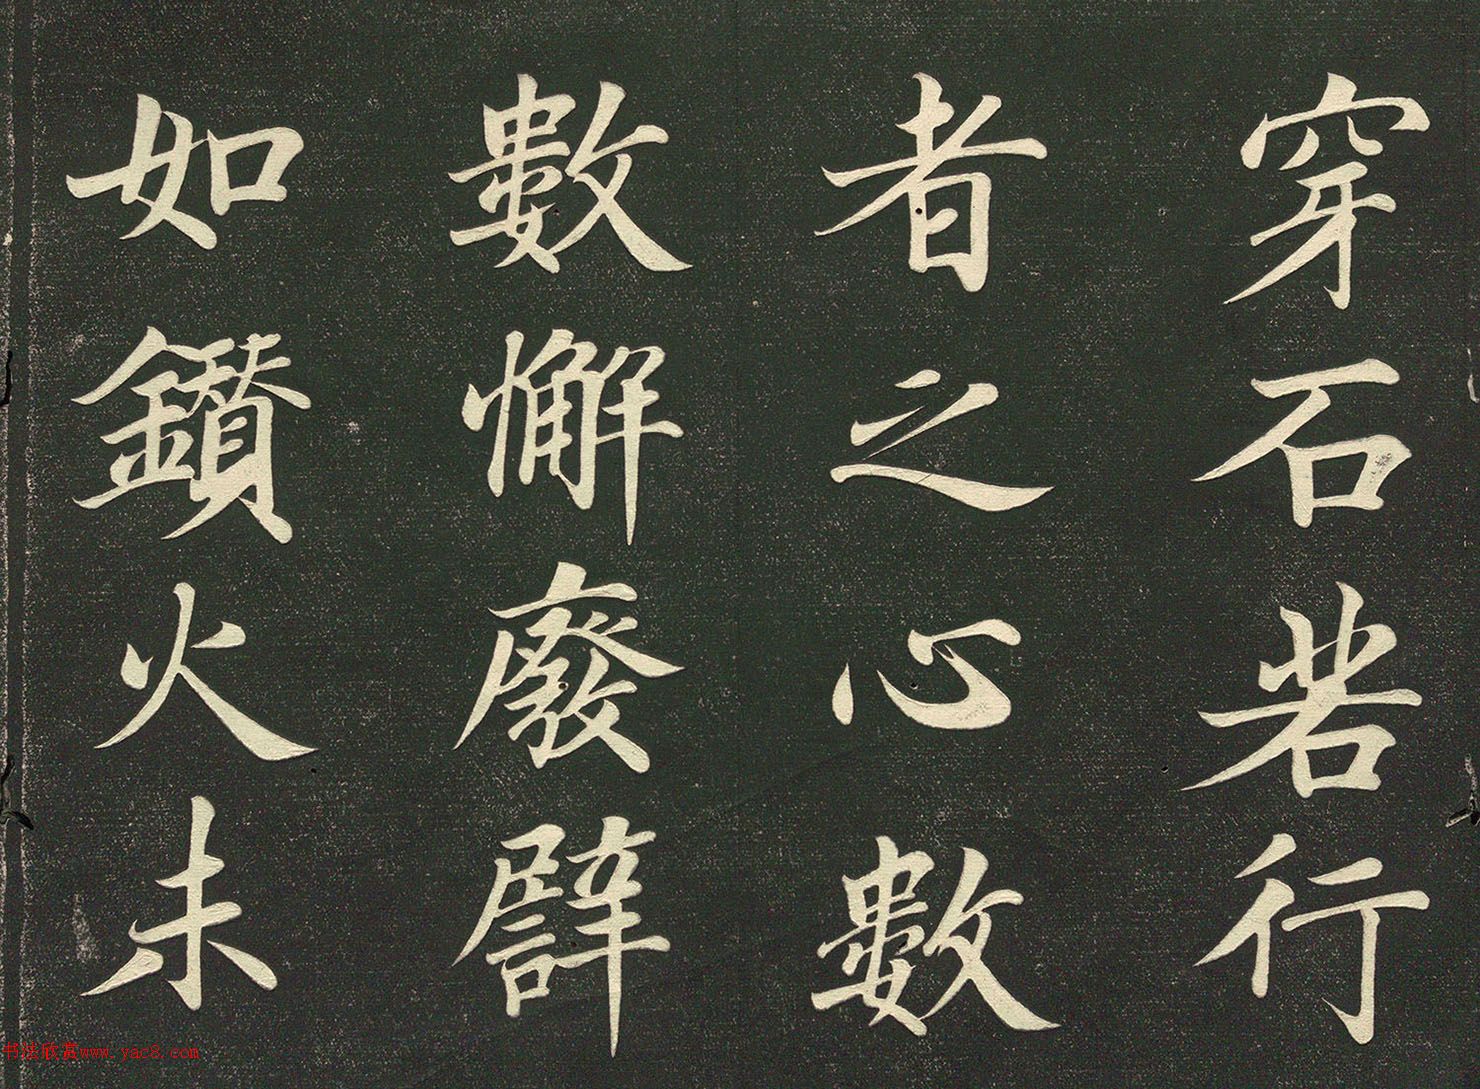 穿石若行
者之心數
數懈廢譬
如鑚火未
书法欣赏www.yac8.com